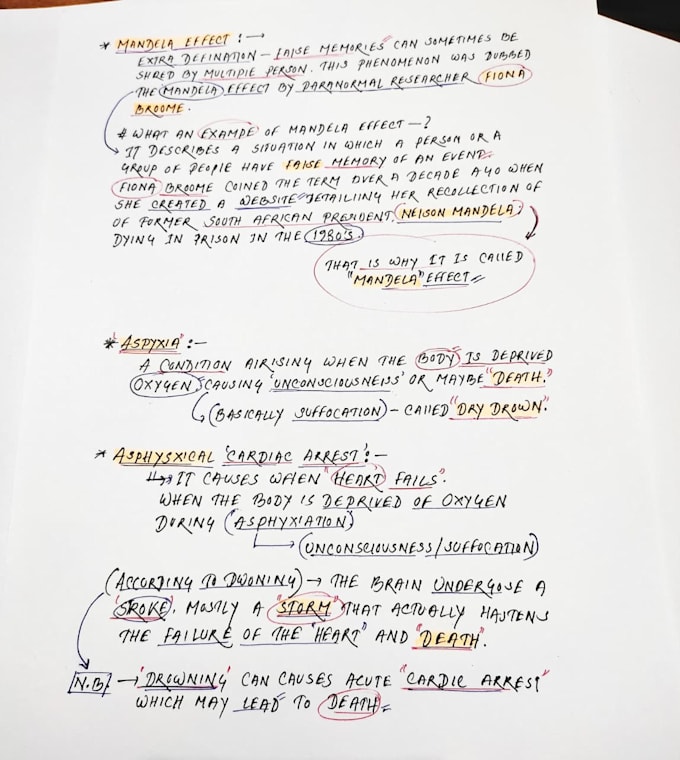 * MANDELA EFFECT :—→
EXTRA DEFINATION — FALSE MEMORIES" CAN SOMETIMES BE
SHRED BY MULTIPLE PERSON. THIS PHENOMENON WAS DUBBED
THE MANDELA EFFECT BY PARANORMAL RESEARCHER FIONA
BROOME.
# WHAT AN EXAMPE OF MANDELA EFFECT —?
IT DESCRIBES A SITUATION IN WHICH A PERSON OR A
GROUP OF PEOPLE HAVE FALSE MEMORY OF AN EVENT.
FIONA BROOME COINED THE TERM OVER A DECADE AGO WHEN
SHE CREATED A WEBSITE DETAILIING HER RECOLLECTION OF
OF FORMER SOUTH AFRICAN PRESIDENT, NELSON MANDELA
DYING IN PRISON IN THE 1980'S.
THAT IS WHY IT IS CALLED
"MANDELA" EFFECT
* "ASPYXIA" :—
A CONDITION AIRISING WHEN THE "BODY" IS DEPRIVED
OXYGEN, CAUSING 'UNCONSCIOUSNEISS' OR MAYBE "DEATH."
(BASICALLY SUFFOCATION) — CALLED "DRY DROWN".
* ASPHYSXICAL 'CARDIAC ARREST' :—
IT CAUSES WHEN "HEART FAILS".
WHEN THE BODY IS DEPRIVED OF OXYGEN
DURING (ASPHYXIATION)
(UNCONSCIOUSNESS/SUFFOCATION)
(ACCORDING TO DWONING) → THE BRAIN UNDERGOSE A
'SROKE'. MOSTLY A "STORM" THAT ACTUALLY HASTENS
THE FAILURE OF THE "HEART" AND "DEATH".
N.B! → 'DROWNING' CAN CAUSES ACUTE "CARDIC ARREST"
WHICH MAY LEAD TO DEATH